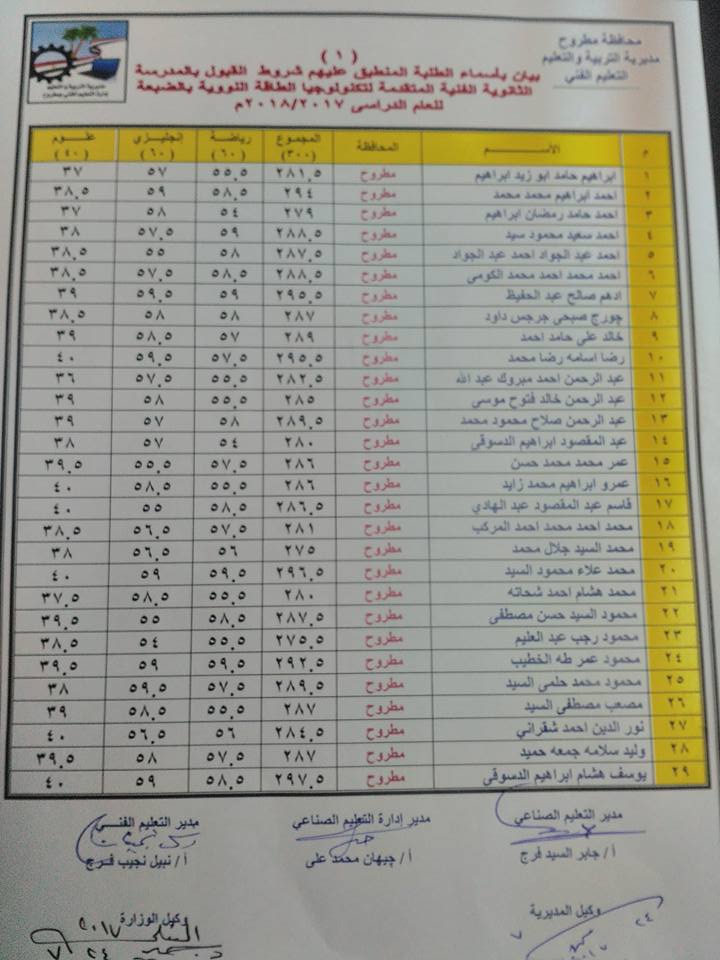 محافظة مطروح
مديرية التربية والتعليم
التعليم الفني
( ١ )
بيان بأسماء الطلبة المنطبق عليهم شروط القبول بالمدرسة
الثانوية الفنية المتقدمة لتكنولوجيا الطاقة النووية بالضبعة
للعام الدراسى ٢٠١٨/٢٠١٧م
م الاســـــم المحافظة المجموع (٣٠٠) رياضة (٦٠) إنجليزي (٦٠) علوم (٤٠)
١ ابراهيم حامد ابو زيد ابراهيم مطروح ٢٨١,٥ ٥٥,٥ ٥٧ ٣٧
٢ احمد ابراهيم محمد محمد مطروح ٢٩٤ ٥٨,٥ ٥٩ ٣٨,٥
٣ احمد حامد رمضان ابراهيم مطروح ٢٧٩ ٥٤ ٥٨ ٣٧
٤ احمد سعيد محمود سيد مطروح ٢٨٨,٥ ٥٩ ٥٧,٥ ٣٨
٥ احمد عبد الجواد احمد عبد الجواد مطروح ٢٨٧,٥ ٥٨ ٥٥ ٣٨,٥
٦ احمد محمد احمد محمد الكومى مطروح ٢٨٨,٥ ٥٨,٥ ٥٧,٥ ٣٨,٥
٧ ادهم صالح عبد الحفيظ مطروح ٢٩٥,٥ ٥٩ ٥٩,٥ ٣٩
٨ جورج صبحى جرجس داود مطروح ٢٨٧ ٥٨ ٥٨ ٣٨,٥
٩ خالد على حامد احمد مطروح ٢٨٩ ٥٧ ٥٨,٥ ٣٩
١٠ رضا اسامه رضا محمد مطروح ٢٩٥,٥ ٥٧,٥ ٥٩,٥ ٤٠
١١ عبد الرحمن احمد مبروك عبد الله مطروح ٢٨٢,٥ ٥٥,٥ ٥٧,٥ ٣٦
١٢ عبد الرحمن خالد فتوح موسى مطروح ٢٨٥ ٥٥,٥ ٥٨ ٣٩
١٣ عبد الرحمن صلاح محمود محمد مطروح ٢٨٩,٥ ٥٨ ٥٧ ٣٩
١٤ عبد المقصود ابراهيم الدسوقى مطروح ٢٨٠ ٥٤ ٥٧ ٣٨
١٥ عمر محمد محمد حسن مطروح ٢٨٦ ٥٧,٥ ٥٥,٥ ٣٩,٥
١٦ عمرو ابراهيم محمد زايد مطروح ٢٨٦ ٥٥,٥ ٥٨,٥ ٤٠
١٧ قاسم عبد المقصود عبد الهادي مطروح ٢٨٦,٥ ٥٨,٥ ٥٥ ٤٠
١٨ محمد احمد محمد احمد المركب مطروح ٢٨١ ٥٧,٥ ٥٦,٥ ٣٨,٥
١٩ محمد السيد جلال محمد مطروح ٢٧٥ ٥٦ ٥٦,٥ ٣٨
٢٠ محمد علاء محمود السيد مطروح ٢٩٦,٥ ٥٩,٥ ٥٩ ٤٠
٢١ محمد هشام احمد شحاته مطروح ٢٨٠ ٥٥,٥ ٥٨,٥ ٣٧,٥
٢٢ محمود السيد حسن مصطفى مطروح ٢٨٧,٥ ٥٨,٥ ٥٥ ٣٩,٥
٢٣ محمود رجب عبد العليم مطروح ٢٧٥,٥ ٥٥,٥ ٥٤ ٣٨,٥
٢٤ محمود عمر طه الخطيب مطروح ٢٩٢,٥ ٥٩ ٥٩ ٣٩,٥
٢٥ محمود محمد حلمى السيد مطروح ٢٨٩,٥ ٥٧,٥ ٥٩,٥ ٣٨
٢٦ مصعب مصطفى السيد مطروح ٢٨٧ ٥٥,٥ ٥٨,٥ ٣٩
٢٧ نور الدين احمد شقرانى مطروح ٢٨٤,٥ ٥٦ ٥٦,٥ ٤٠
٢٨ وليد سلامه جمعه حميد مطروح ٢٨٧ ٥٧,٥ ٥٨ ٣٩,٥
٢٩ يوسف هشام ابراهيم الدسوقى مطروح ٢٩٧,٥ ٥٨,٥ ٥٩ ٤٠
مدير التعليم الصناعي مدير إدارة التعليم الصناعي مدير التعليم الفني
أ/ جابر السيد فرج أ/ جيهان محمد على أ/ نبيل نجيب فرج
وكيل المديرية وكيل الوزارة